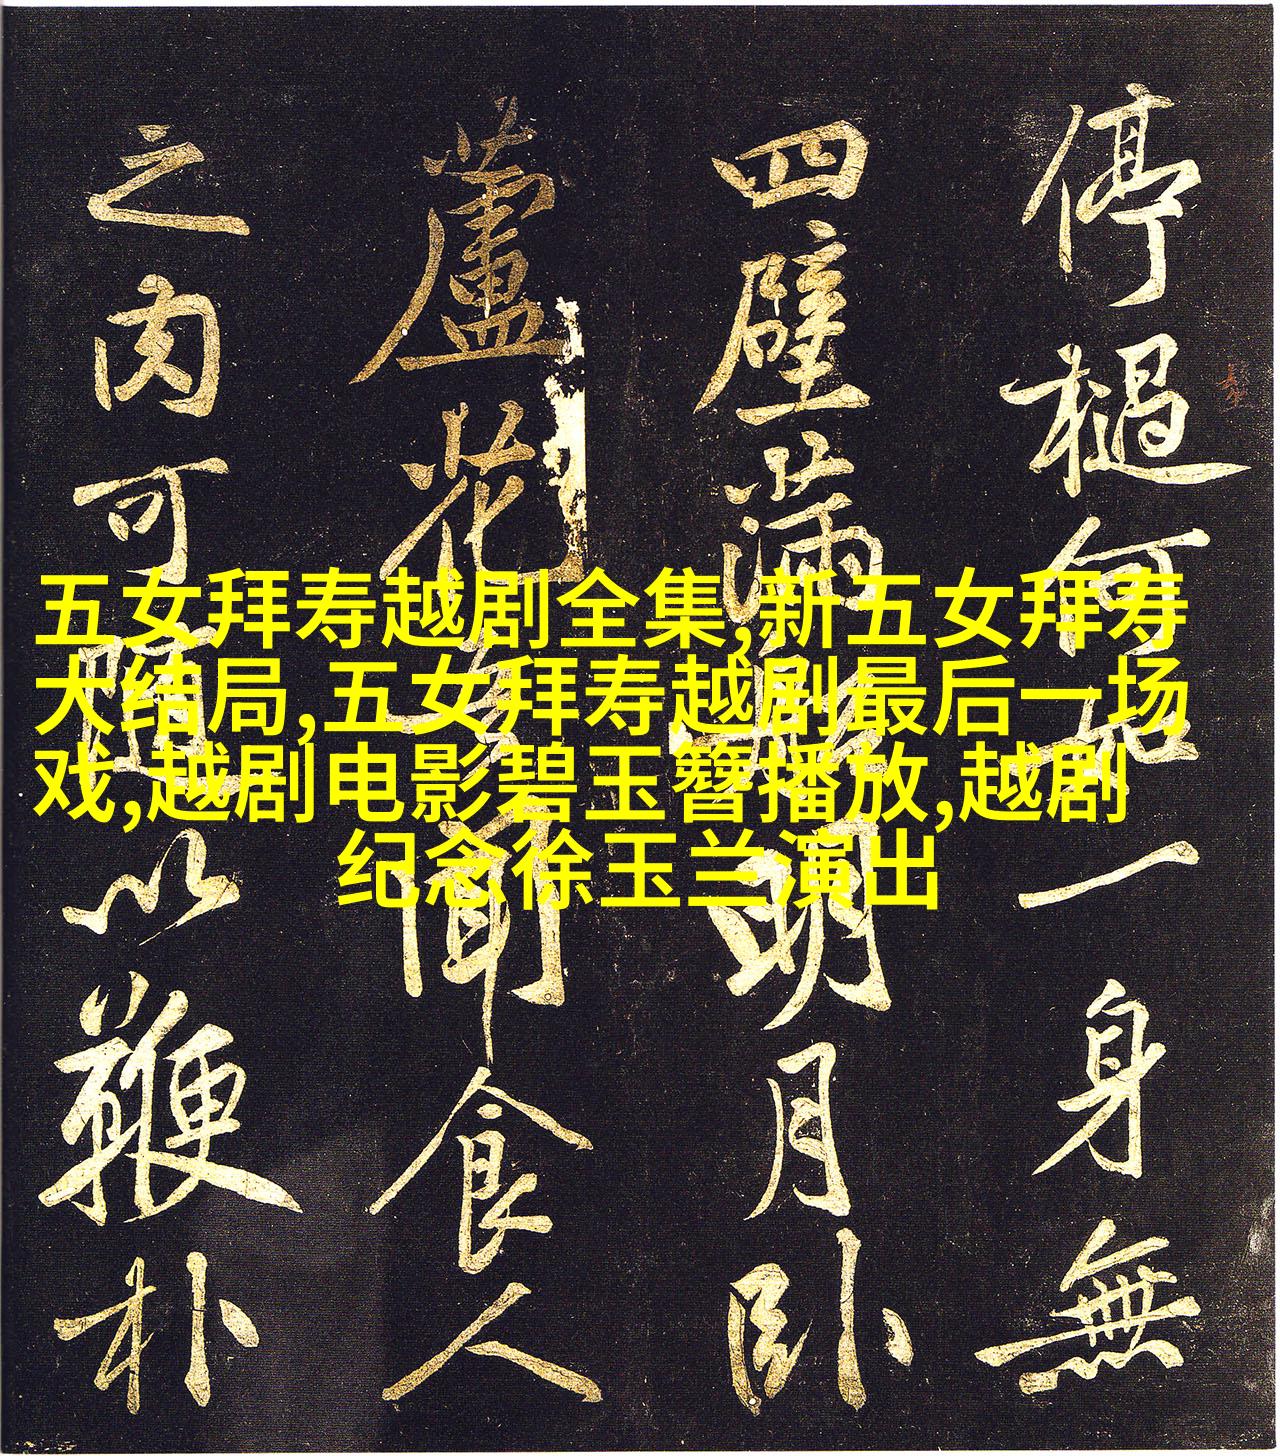 五女拜寿越剧全集,新五女拜寿
大结局,五女拜寿越剧最后一场
戏,越剧电影碧玉簪播放,越剧
纪念徐玉兰演出
停檛何一身無
四壁滿明月卧
蘆花聞食人
之肉可隨以鞭朴